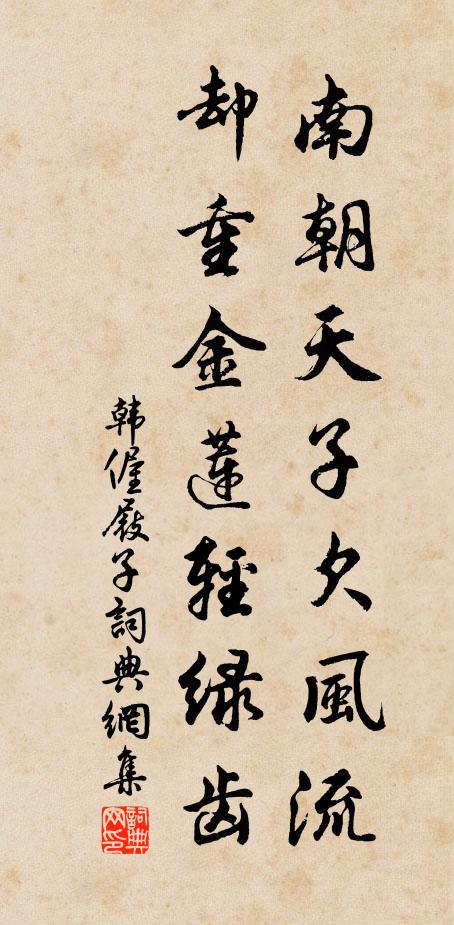 南朝天子欠風流
却重金蓮輕绿齿
韩偓屐子詞典網集
詞典网印